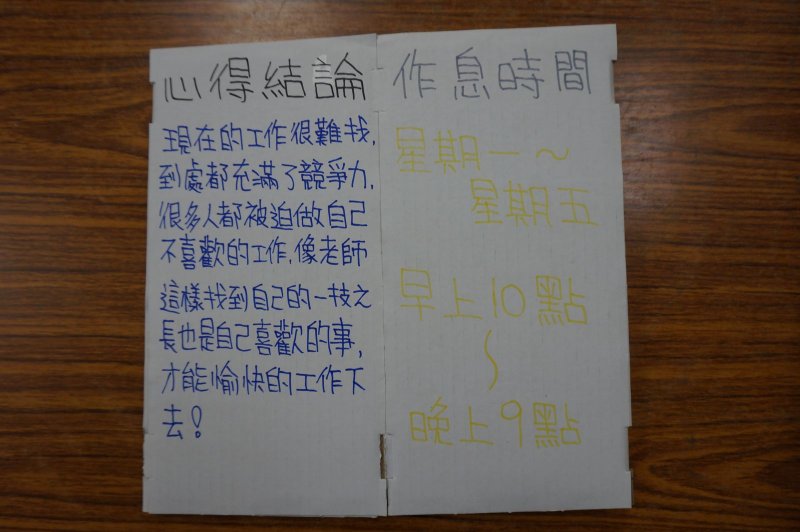 心得結論
現在的工作很難找,
到處都充滿了競爭力,
很多人都被迫做自己
不喜歡的工作,像老師
這樣找到自己的一技之
長也是自己喜歡的事,
才能愉快的工作下
去!
作息時間
星期一~
星期五
早上10點
~
晚上9點